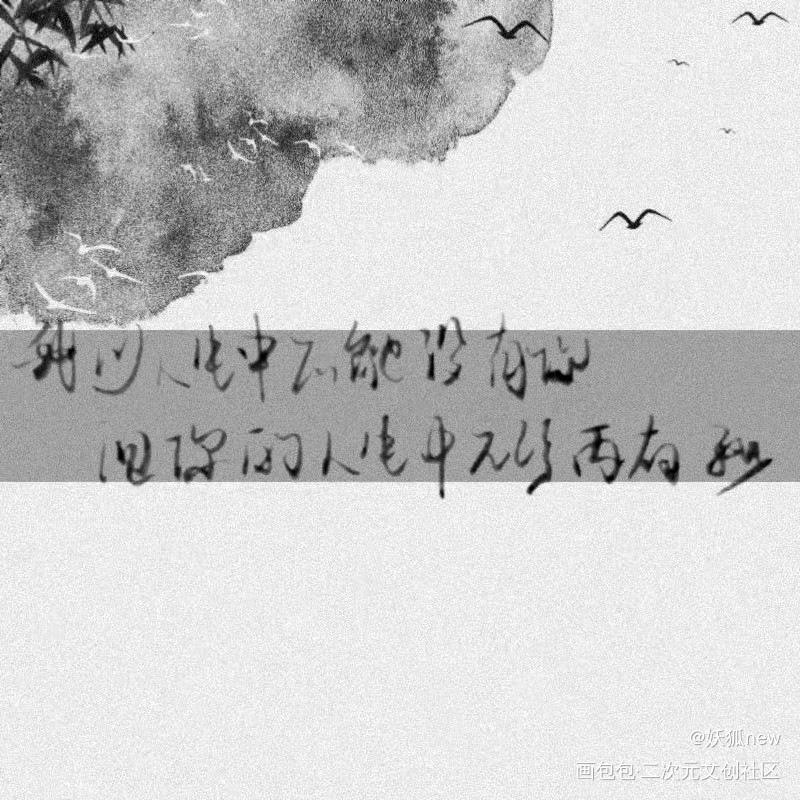 我的人生中不能没有你
但你的人生中无须再有我
@妖狐new
画包包·二次元文创社区